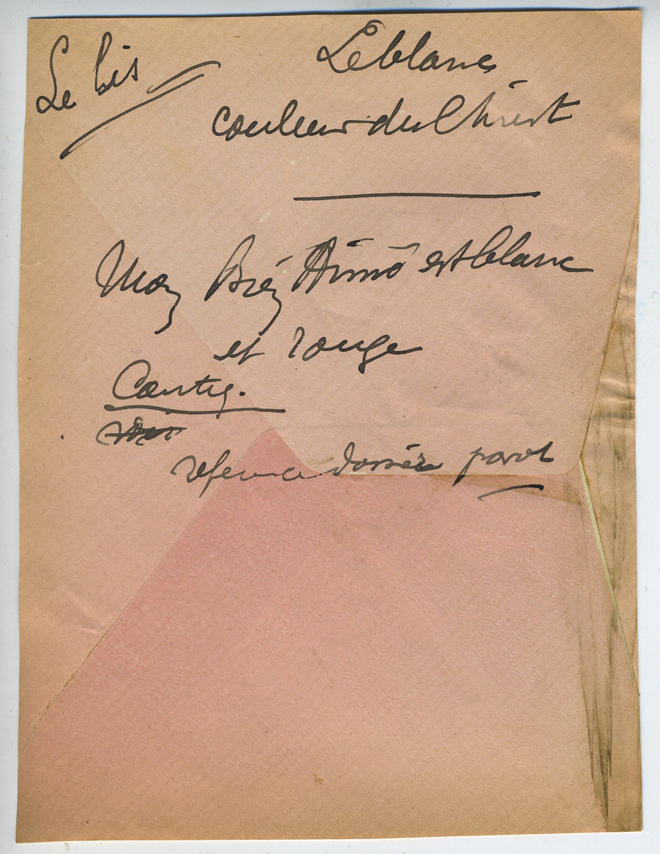 Le lis
Le blanc
couleur du Christ
Mon Bien Aimé est blanc
et rouge
Cantiq.
reference dossier pavot